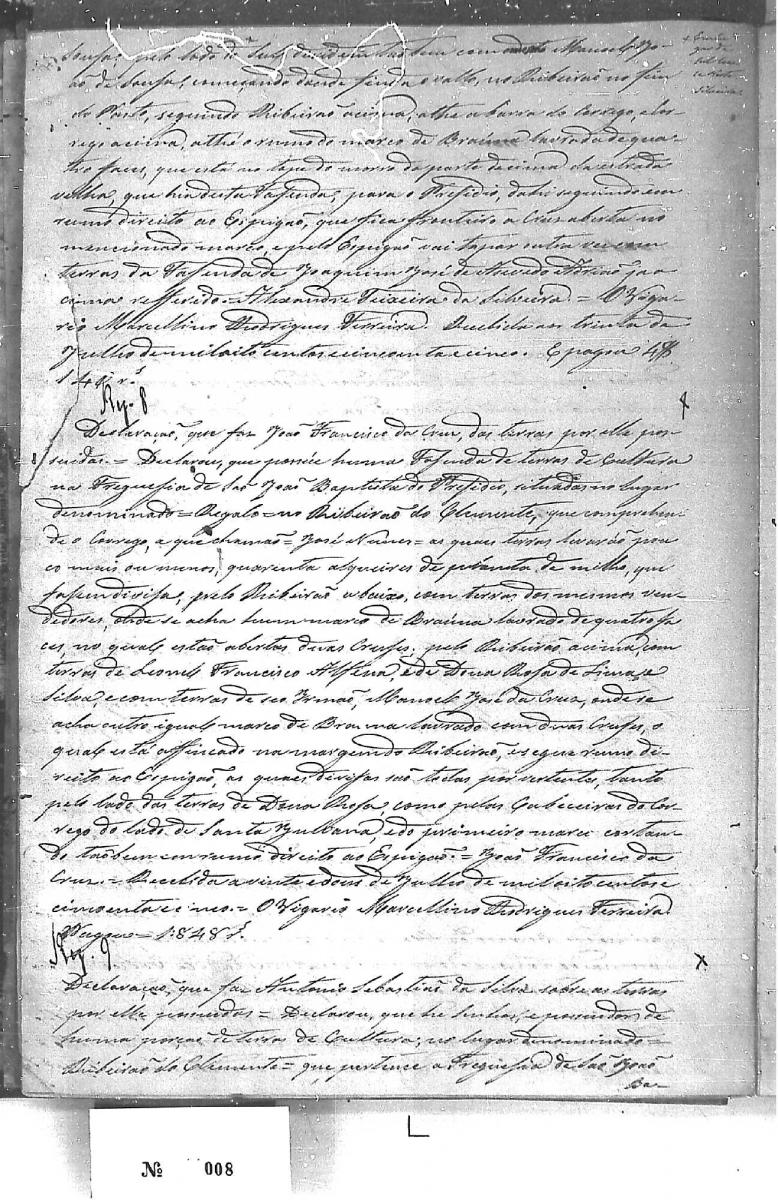 Sousa, pelo lado do Sul, devide tambem com Manoel Jo-
ão de Sousa, comesando donde finda o vallo, no Ribeirão no fim
do Pasto, seguindo Ribeirão acima, athe a barra do Corrego, e Cor-
rego acima, athé o rumo do marco de Braúna lavrado de qua-
tro faces, que está no tope do morro da parte de cima da estrada
velha, que hia desta Fasenda, para o Presidio, dahi seguindo em
rumo direito ao Espigão, que fica fronteiro a Cruz aberta no
mencionado marco, e pelo Espigão vai topar outra vez com
terras da Fasenda de Joaquim José de Asevedo Adrião já a
cima refferedo = Alexandre Teixeira da Silveira. = O Viga-
rio Marcellino Rodrigues Ferreira. Recebida aos trinta de
Julho de mil oito centos e cincoenta e cinco. E pagou
Reg. 8
Declaração, que faz João Francisco da Cruz, das terras por elle pos-
suidas. = Declarou, que possúe huma Fasenda de terras de Cultura
na Freguesia de São João Baptista do Presidio, situadas no lugar
denominado = Regalo = no Ribeirão do Clemente, que comprehen-
de o Corrego, a que chamão = José Nunes = as quaes terras levarão pou
co mais ou menos, quarenta alqueires de planta de milho, que
fasem divisa, pelo Ribeirão abaixo, com terras dos mesmos ven-
dedores, onde se acha hum marco de Braúna lavrado de quatro fa
ces, no qual estão abertas duas Cruses; pelo Ribeirão acima, com
terras de Leonel Francisco Alfena, e de Dona Rosa de Lima e
Silva, e com terras de seo Irmão, Manoel José da Cruz, onde se
acha outro igual marco de Brauna lavrado com duas Cruses, o
qual está affincado na margem do Ribeirão, e segue rumo di-
reito ao Espigão, as quaes devisas são todas por vertentes, tanto
pelo lado das terras de Dona Rosa, como pelas Cabeceiras do Cor-
rego do lado de Santa Julianna, e do primeiro marco cortan-
do taobem com rumo direito ao Espigão. = João Francisco da
Cruz = Recebida a vinte e dous de Julho de mil oito centos e
cincoenta e cinco. = O Vigario Marcellino Rodrigues Ferreira.
Pagou = 1:848 rs.
Reg. 9
X
Declaração, que faz Antonio Sebastião da Silva sobre as terras
por elle possuidas = Declarou, que he Senhor, e possuidor de
huma porção de terras de Cultura, no lugar denominado =
Ribeirão do Clemente = que pertence a Freguesia de São João
Ba-
№ 008